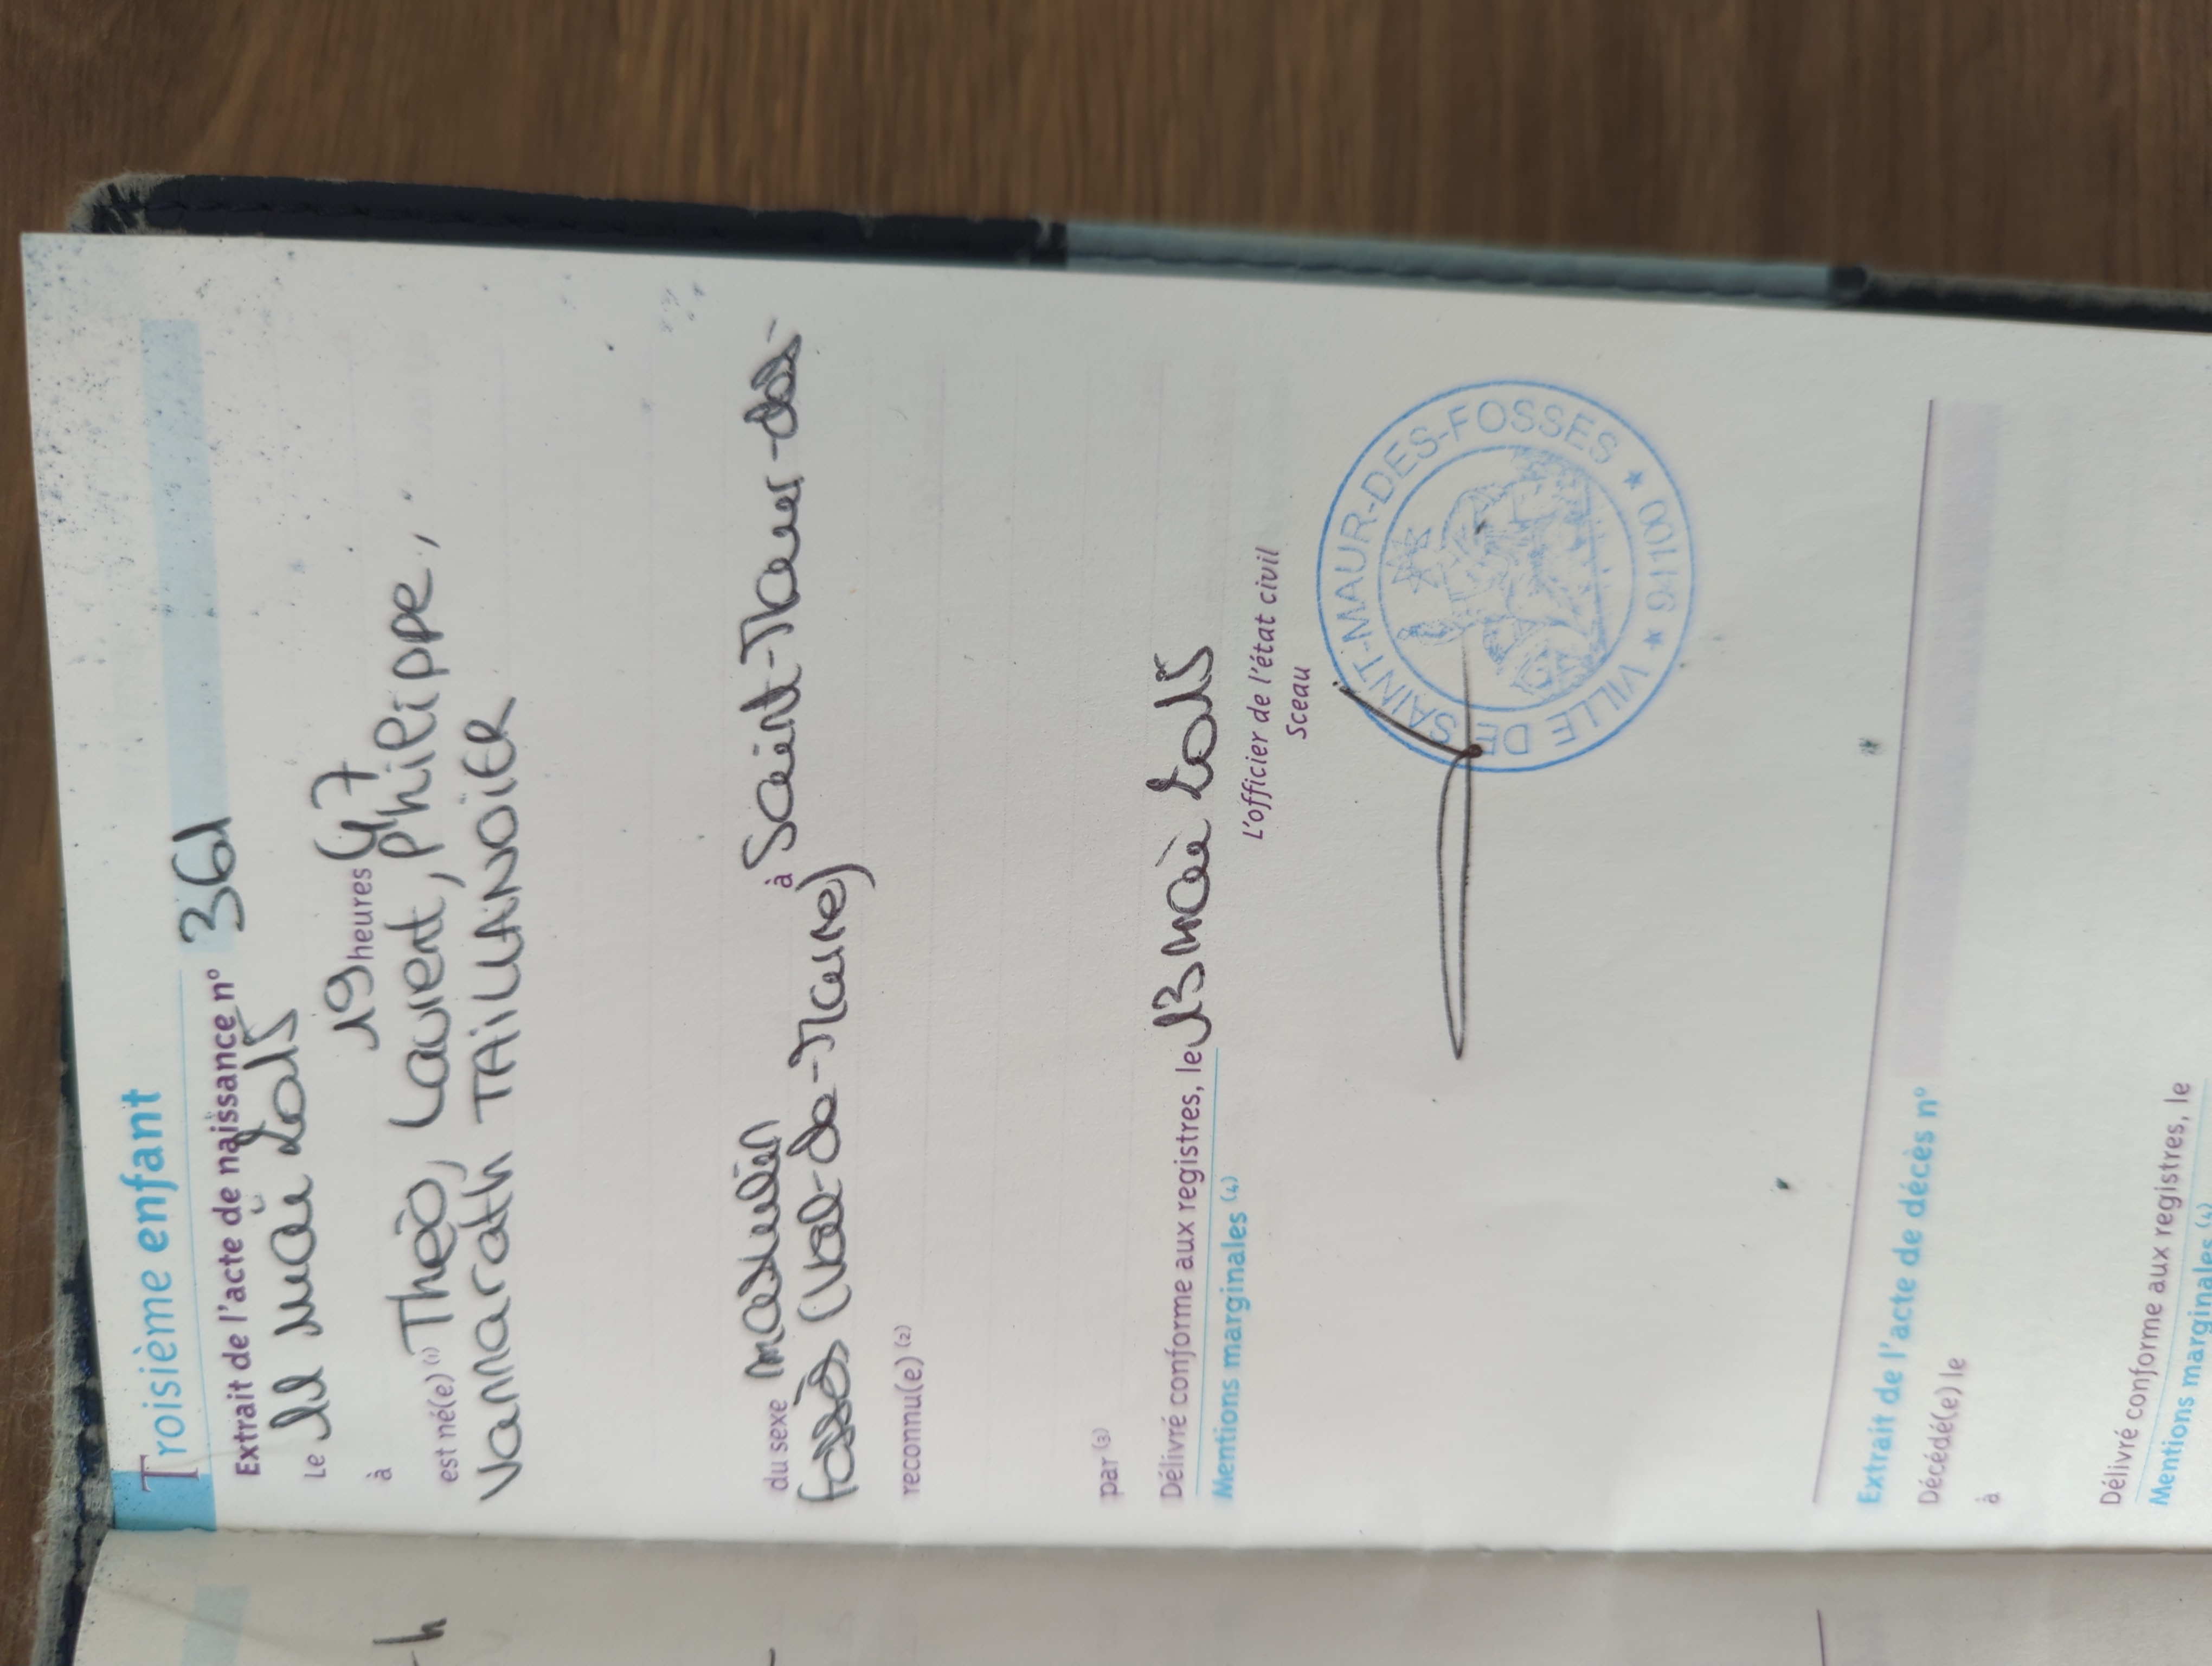 Troisième enfant
Extrait de l'acte de naissance n° 361
Le 11 mai 2015
à 19 heures 47
est né(e) (1) Théo, Laurent, Philippe,
Vannarath TAILLANDIER
du sexe masculin à Saint-Maur-des-
Fossés (Val-de-Marne)
reconnu(e) (2)
par (3)
Délivré conforme aux registres, le 13 mai 2015
Mentions marginales (4)
L'officier de l'état civil
Sceau
VILLE DE SAINT-MAUR-DES-FOSSES ★ 94100 ★
Extrait de l'acte de décès n°
Décédé(e) le
à
Délivré conforme aux registres, le
Mentions marginales (4)